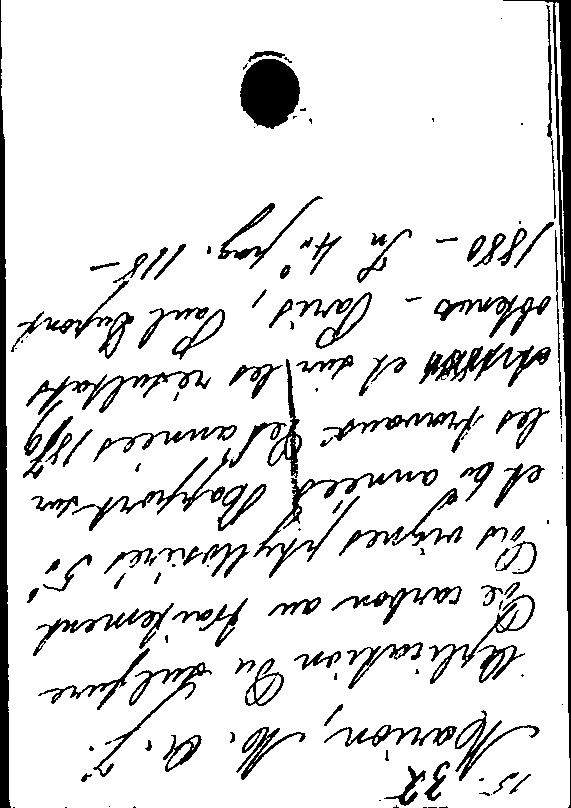 15. 32
Marion, M. A. J.
Application Du Sulfure
De carbon au traitement
Des vignes phylloxérées 5e
et 6e années Rapport sur
les travaux des années 1879
et sur les résultats
obtenus - Paris, Paul Dupont
1880 - In 4º, pag. 118 -